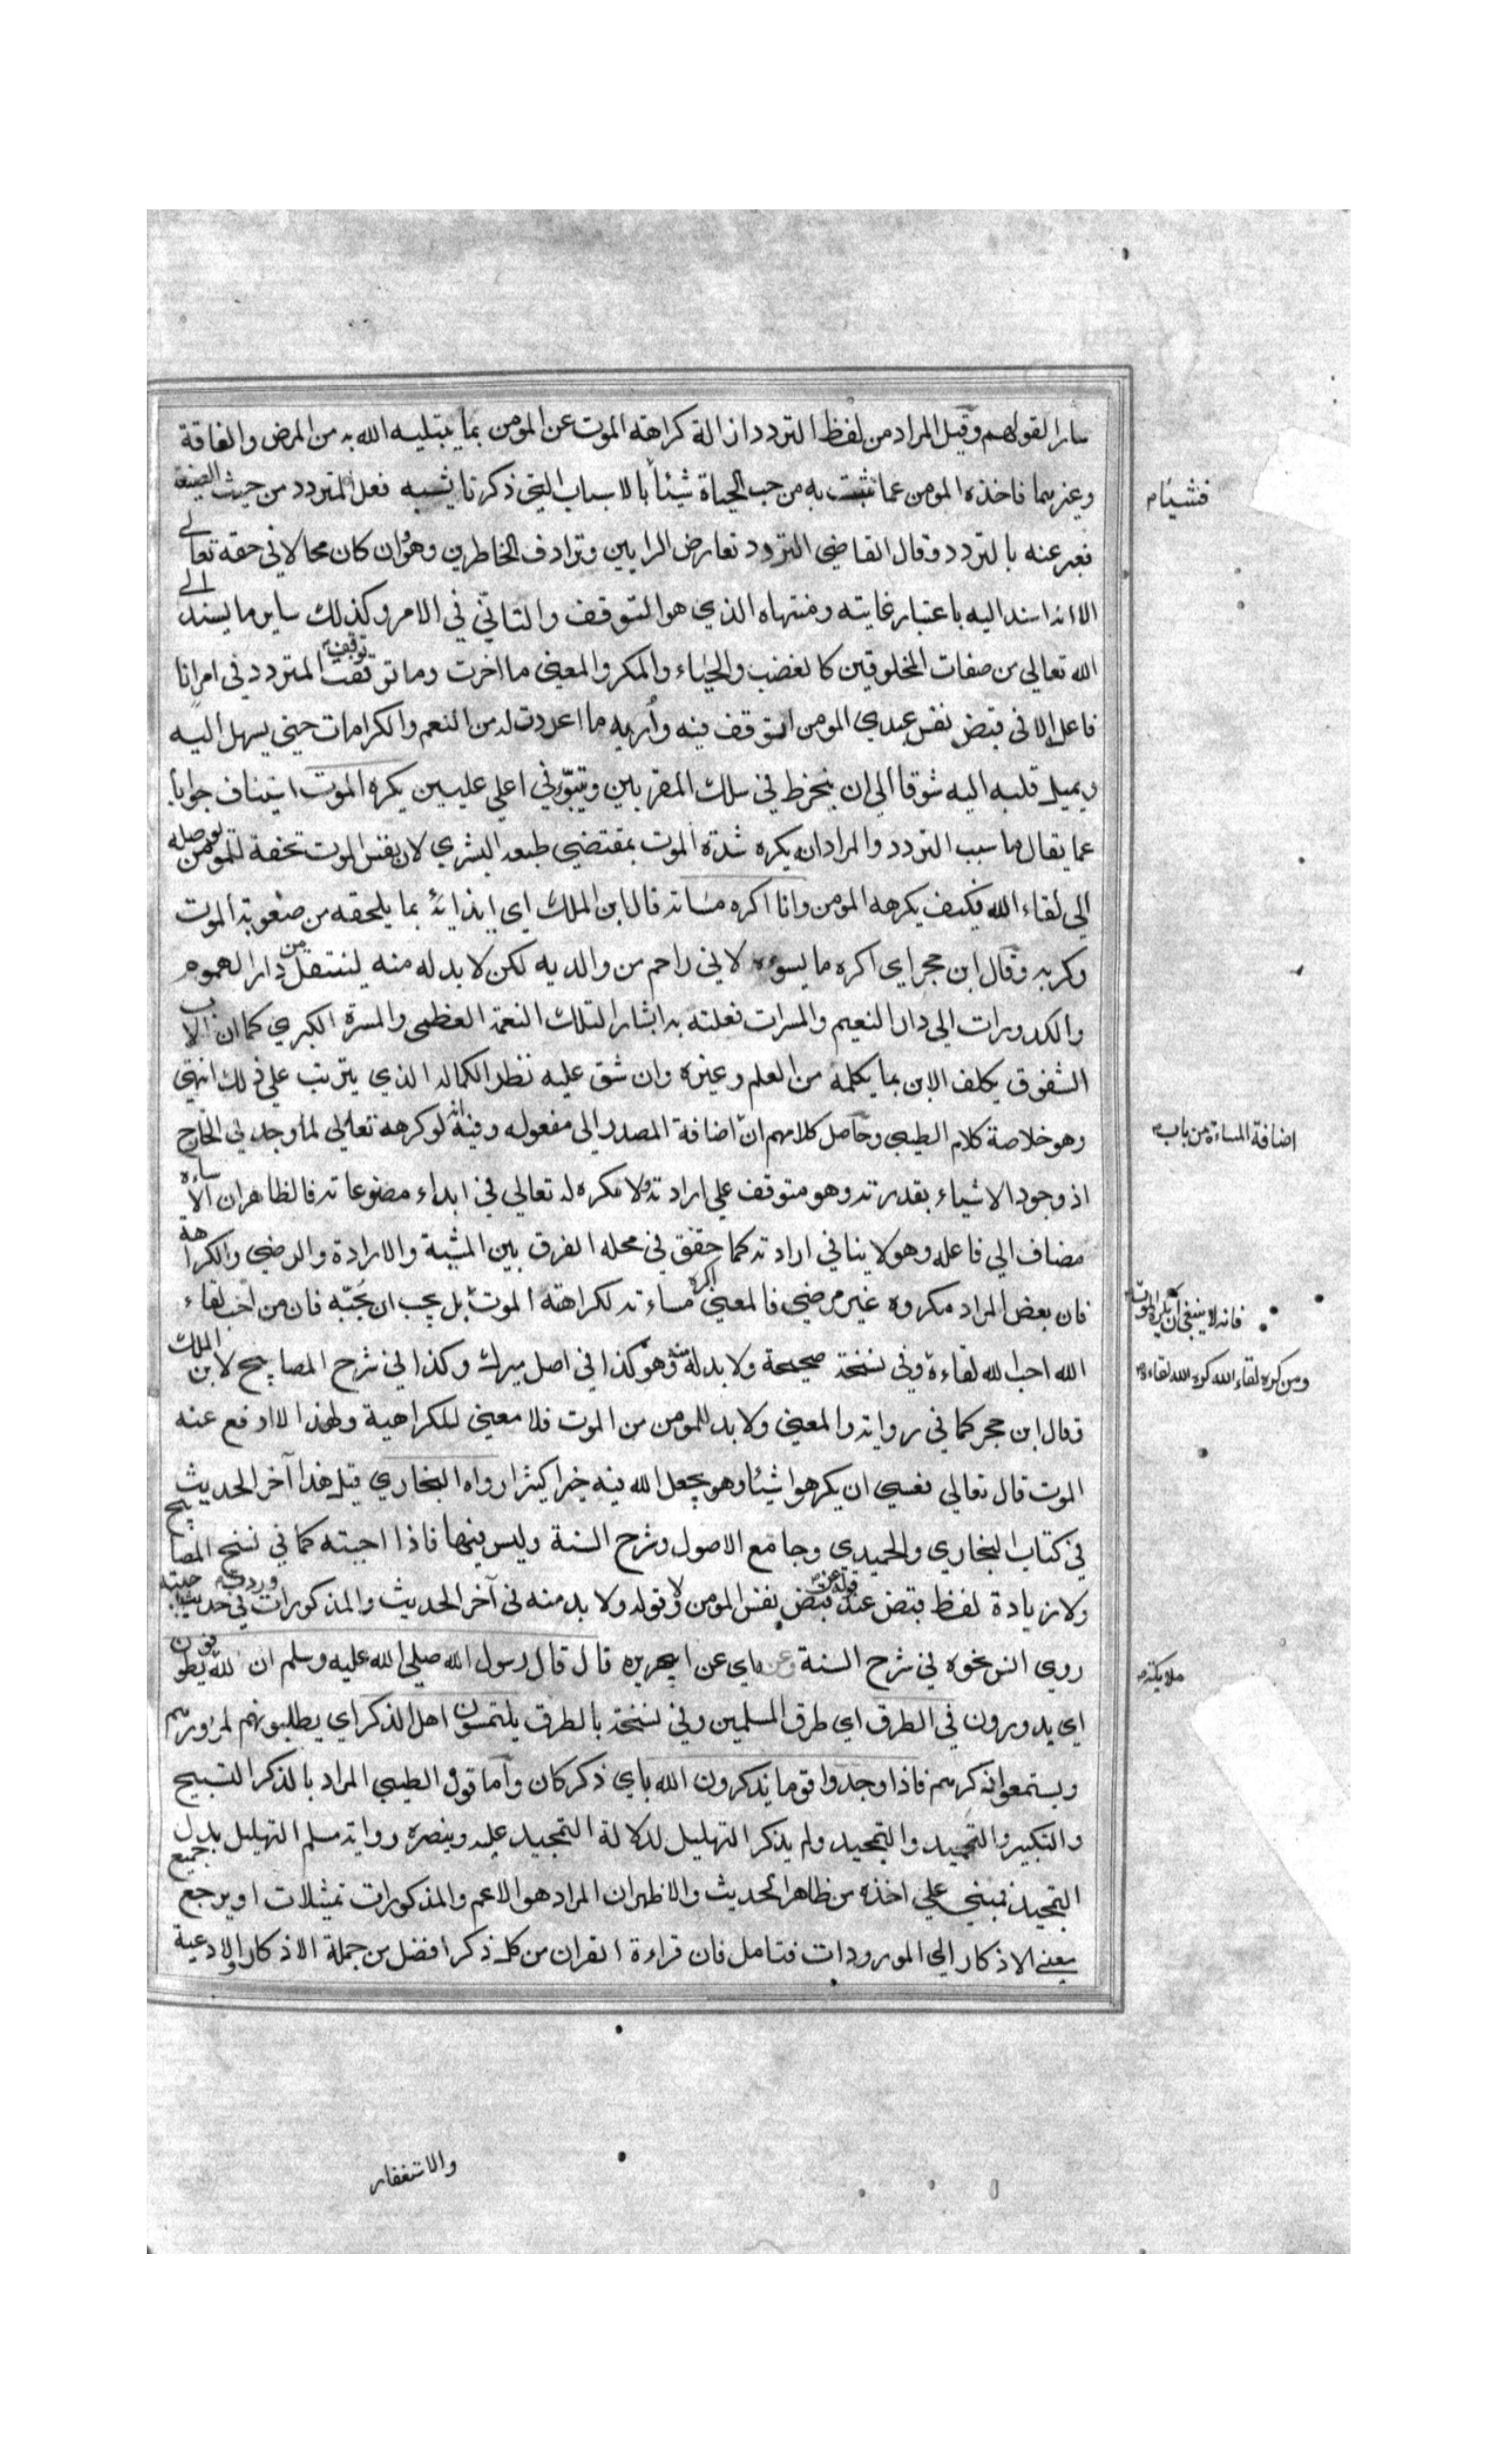 سارا لقولهم وقيل المراد من لفظ التردد ازالة كراهة الموت عن المومن بما يبتليه الله به من المرض والفاقة
وغيرهما فاخذه المومن عما تشبث به من حب الحياة شيئا بالاسباب التي ذكرنا يشبه فعل المتردد من حيث الصنيعة
فعبر عنه بالتردد وقال القاضي التردد تعارض الرايين وترادف الخاطرين وهو وان كان محالا في حقه تعالي
الا انه اسند اليه باعتبار غايته ومنتهاه الذي هو التوقف والتاني في الامر وكذلك ساير ما يسند الي
الله تعالي من صفات المخلوقين كالغضب والحياء والمكر والمعني ما اخرت وما توقفت توقف المتردد في امر انا
فاعله الا في قبض نفس عبدي المومن اتوقف فيه وأريه ما اعددت له من النعم والكرامات حتي يسهل اليه
ويميل قلبه اليه شوقا الي ان ينخرط في سلك المقربين ويتبوّء في اعلي عليين يكره الموت استيناف جوابا
عما يقال ما سبب التردد والمراد انه يكره شدة الموت بمقتضي طبعه البشري لان نفس الموت تحفة للمومن يوصله
الي لقاء الله فكيف يكرهه المومن وانا اكره مساته قال ابن الملك اي ايذائه بما يلحقه من صعوبة الموت
وكربه وقال ابن حجر اي اكره ما يسوءه لاني راحم من والديه لكن لا بد له منه لينتقل من دار الهموم
والكدورات الي دار النعيم والمسرات فعلته به ايثارا لتلك النعمة العظمي والمسرة الكبري كما ان الاب
الشفوق يكلف الابن بما يكلمه من العلم وغيره وان شق عليه نظرا لكماله الذي يترتب علي ذلك انتهي
وهو خلاصة كلام الطيبي وحاصل كلامهم انّ اضافة المصدر الي مفعوله وفيه انه لو كرهه تعالي لما وجد في الخارج
اضافة المساءة من باب
اذ وجود الاشياء بقدرته وهو متوقف علي ارادته ولا مكره له تعالي في ابداء مصنوعاته فالظاهر ان الاساءه
مضاف الي فاعله وهو لا ينافي ارادته كما حقق في محله الفرق بين المشية والارادة والرضي والكراهة
فان بعض المراد مكروه غير مرضي فالمعني اكره مساءته لكراهته الموت بل يجب ان يحبّه فان من احب لقاء
فانه لا ينبغي ان يكره الموت
الله احب الله لقاءه وفي نسخة صحيحة ولا بد له منه وهو كذا في اصل ميرك وكذا في شرح المصابيح لابن الملك
ومن كره لقاء الله كره الله لقاءه
وقال ابن حجر كما في رواية والمعني ولا بد للمومن من الموت فلا معني للكراهية ولهذا لا ادفع عنه
الموت قال تعالي فعسي ان يكرهوا شيئا وهو يجعل الله فيه خيرا كثيرا رواه البخاري قيل هذا آخر الحديث
في كتاب البخاري والحميدي وجامع الاصول وشرح السنة وليس فيها فاذا احببته كما في نسخ المصابيح
ولا زيادة لفظ قبض عند قوله عن قبض نفس المومن ولا قوله ولا بد منه في آخر الحديث والمذكورات في حديث
روي انس نحوه في شرح السنة وعن اي عن ابي هريره قال قال رسول الله صلي الله عليه وسلم ان لله يطوفون
ملايكة
اي يدورون في الطرق اي طرق المسلمين وفي نسخة بالطرق يلتمسون اهل الذكر اي يطلبونهم لمزورهم
ويستمعوا ذكرهم فاذا وجدوا قوما يذكرون الله باي ذكر كان وأما قول الطيبي المراد بالذكر التسبيح
والتكبير والتحميد والتمجيد ولم يذكر التهليل لدلالة التمجيد عليه وينصره رواية مسلم التهليل بدل
التمجيد فمبني علي اخذه من ظاهر الحديث والاظهر ان المراد هو الاعم والمذكورات تمثيلات او يرجع جميع
يعني الاذكار الي المورودات فتامل فان قراءة القران من كل ذكر افضل من جملة الاذكار والادعية
والاستغفار